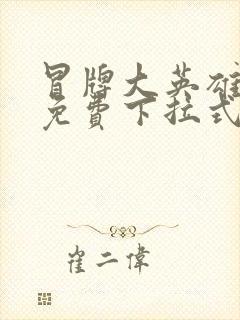 冒牌大英雄
免費下拉式
崔二偉